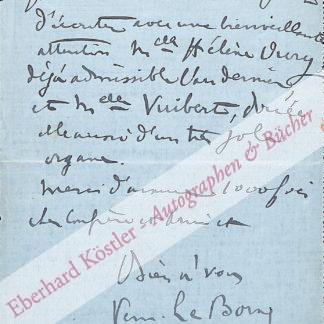 d'écouter avec une bienveillante
attention Mlle Hélène
déjà admissible l'an dernier
et Mlle Vuibert, douée
elle aussi d'un très joli
organe.
Merci d'avance 1000 fois
cher Confrère et ami et
Bien à vous
Le Borne
Eberhard Köstler - Autographen & Bücher